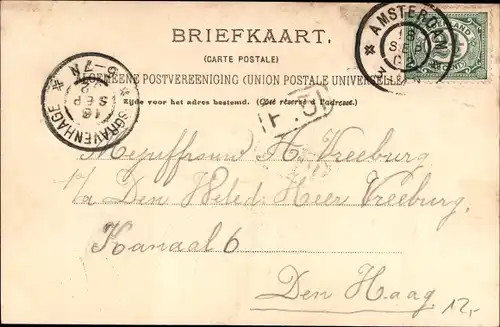 BRIEFKAART.
(CARTE POSTALE)
ALGEMEENE POSTVEREENIGING (UNION POSTALE UNIVERSELLE)
Zijde voor het adres bestemd. (Côté réservé à l'adresse.)
AMSTERDAM
SEP
'S GRAVENHAGE
6-7N
18
SEP
Mejuffrouw H. Vreeburg
p/a Den Weled. Heer Vreeburg.
Kanaal 6
Den Haag
12,-